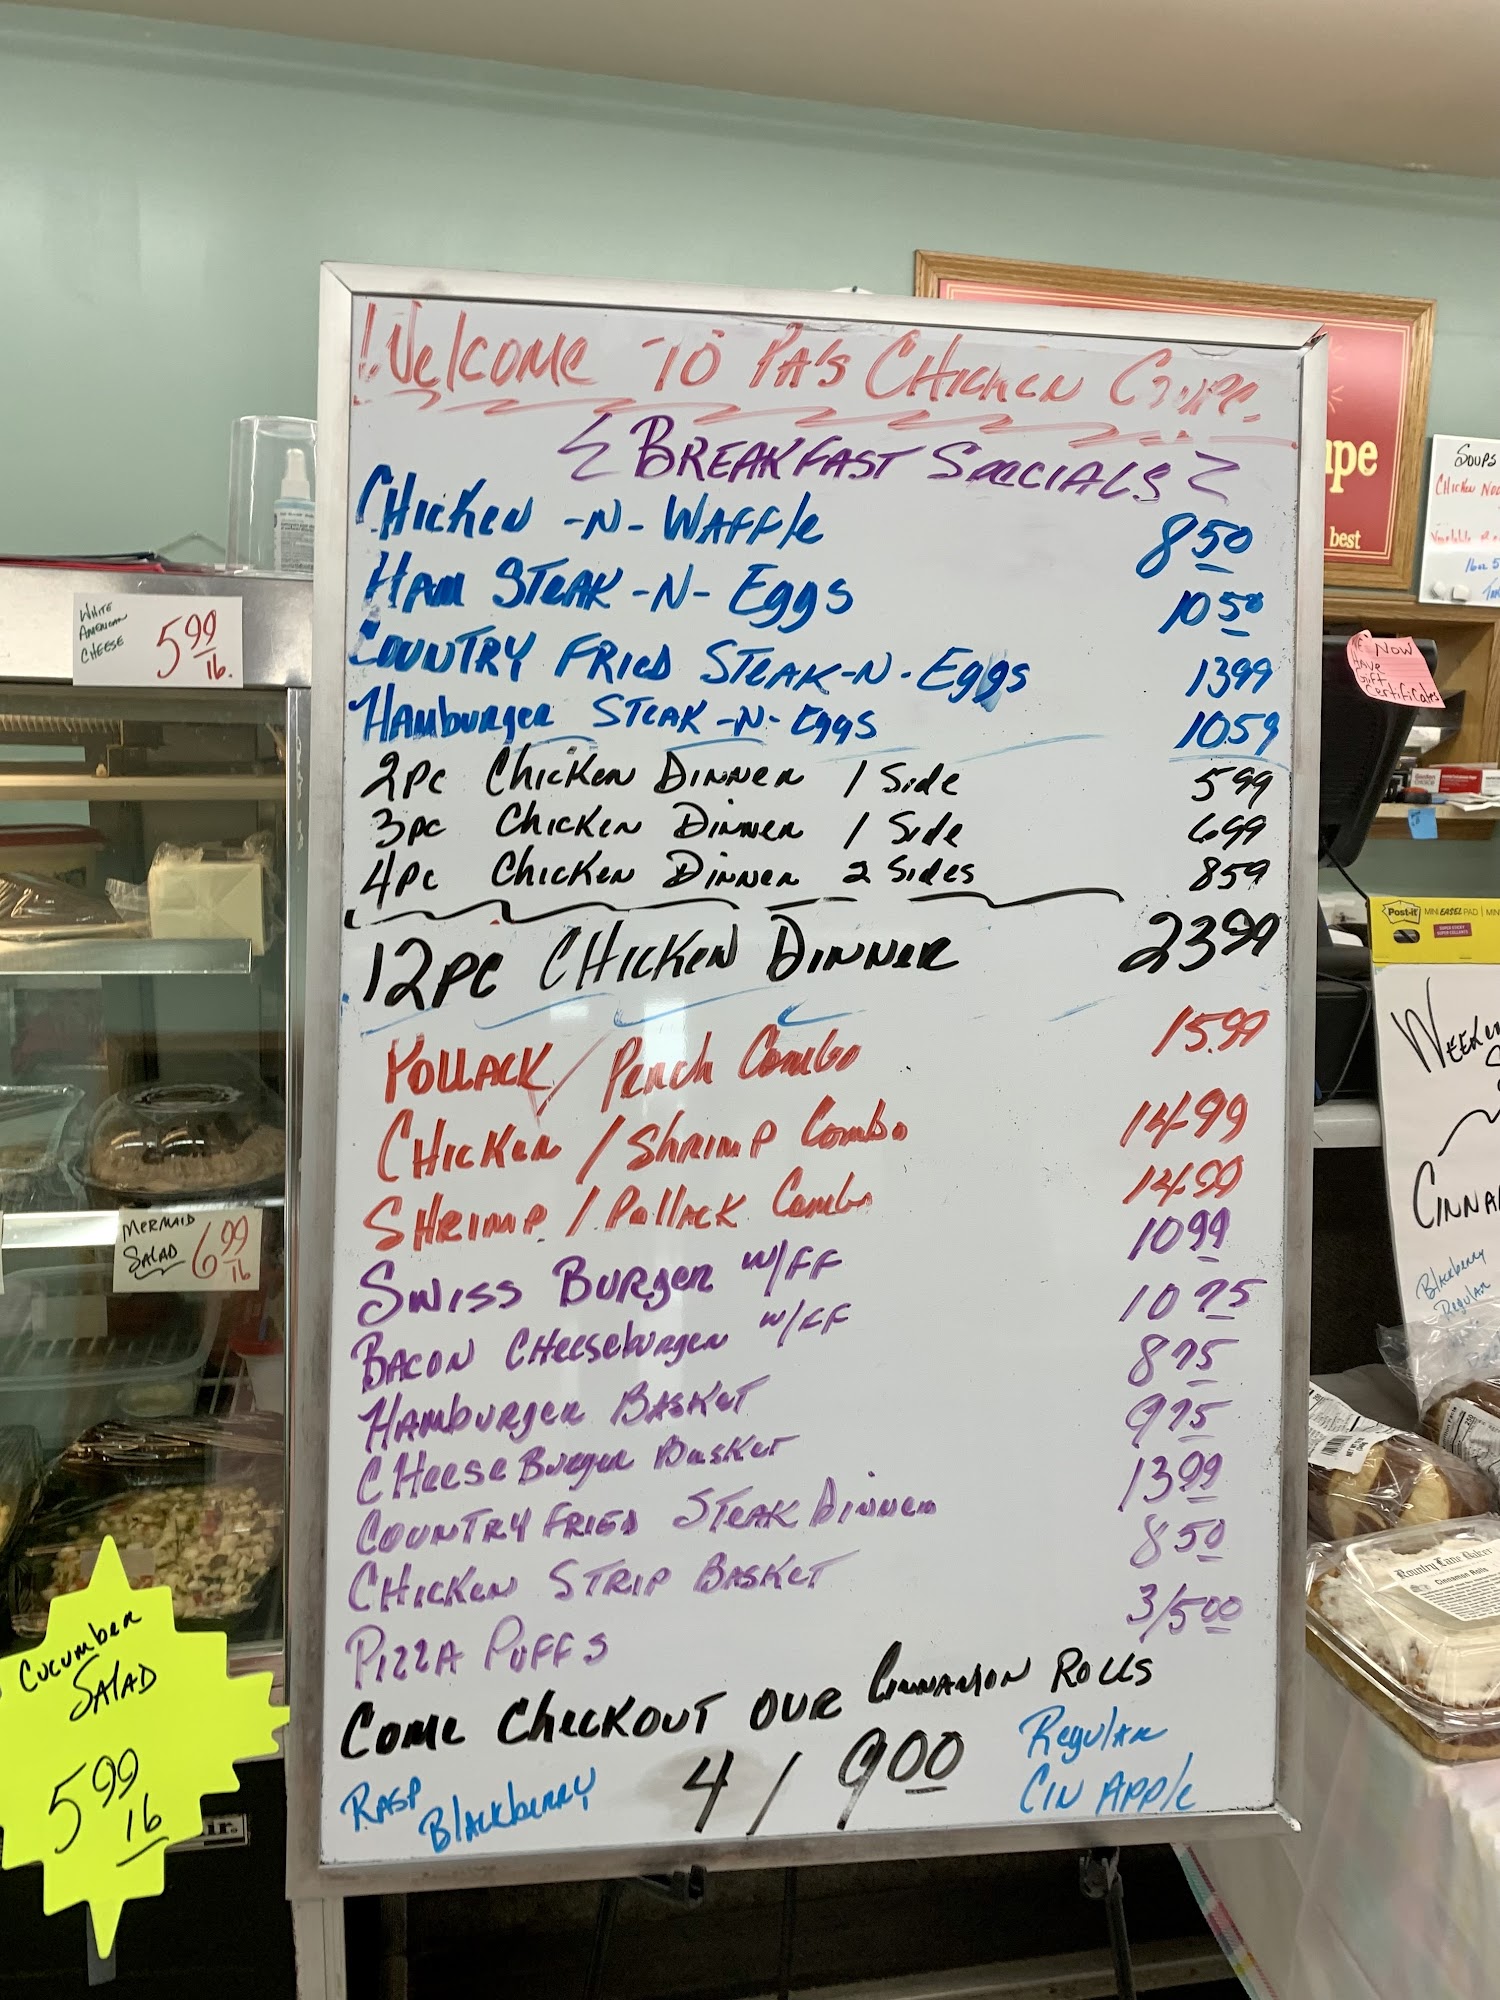 Welcome To Pa's Chicken Coupe
Breakfast Specials
Chicken -N- Waffle 8 50
Ham Steak -N- Eggs 10 50
Country Fried Steak -N- Eggs 13 99
Hamburger Steak -N- Eggs 10 59
2pc Chicken Dinner 1 Side 5 99
3pc Chicken Dinner 1 Side 6 99
4pc Chicken Dinner 2 Sides 8 59
12pc Chicken Dinner 23 99
Pollack / Perch Combo 15.99
Chicken / Shrimp Combo 14.99
Shrimp / Pollack Combo 14.99
Swiss Burger w/FF 10 99
Bacon Cheeseburger w/FF 10 75
Hamburger Basket 8 75
Cheese Burger Basket 9 75
Country Fried Steak Dinner 13 99
Chicken Strip Basket 8 50
Pizza Puffs 3/5 00
Come Checkout our Cinnamon Rolls
Rasp
Blackberry
4 / 9 00
Regular
Cin Apple
White
American
Cheese
5 99 lb.
Mermaid
Salad
6 99 lb
Cucumber
Salad
5 99 lb
upe
best
Soups
Chicken
We Now
Have
Gift
Certificates
Post-it MINI EASEL PAD
Cinna
Blackberry
Regular
Country Lane Baker
Cinnamon Rolls